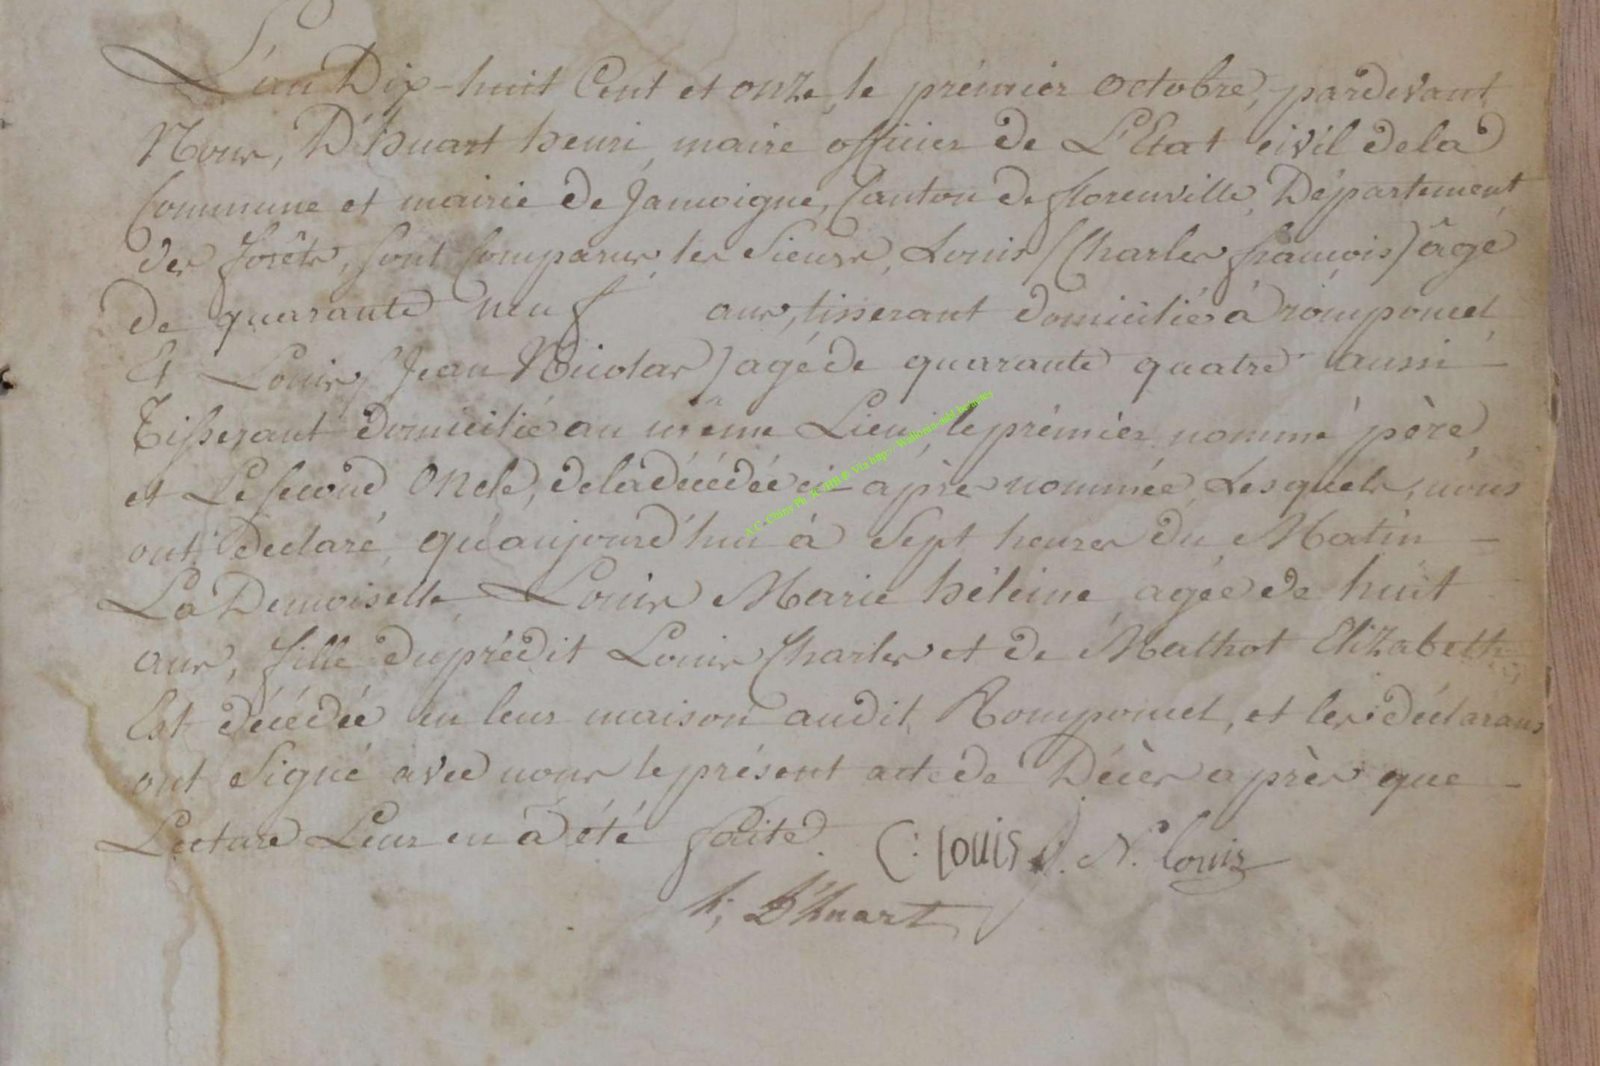 L'an Dix-huit Cent et onze, le prémier Octobre, pardevant
Nous, D'huart henri, maire officier de L'Etat civil dela
Commune et mairie de Jamoigne, Canton de florenville, Département
des forêts, sont Comparus les Sieurs, Louis (Charles françois) âgé
de quarante neuf ans, tisserant domicilié à romponcel
Et Louis (Jean Nicolas) agé de quarante quatre aussi
Tisserant domicilié au même Lieu, le prémier nommé père,
et Le second Oncle, dela décédée ci-après nommée, Lesquels, nous
ont declaré, qu'aujourd'hui à Sept heures du Matin -
La Demoiselle Louis Marie héleine, agée de huit
ans, fille du prédit Louis Charles et de Mathot Elizabeth
Est décédée en leur maison audit Romponcel, et les déclarans
ont Signé avec nous le présent acte de Décès après que -
Lecture Leur en à été faite.
C: Louis J. N. Louis
h; D'huart